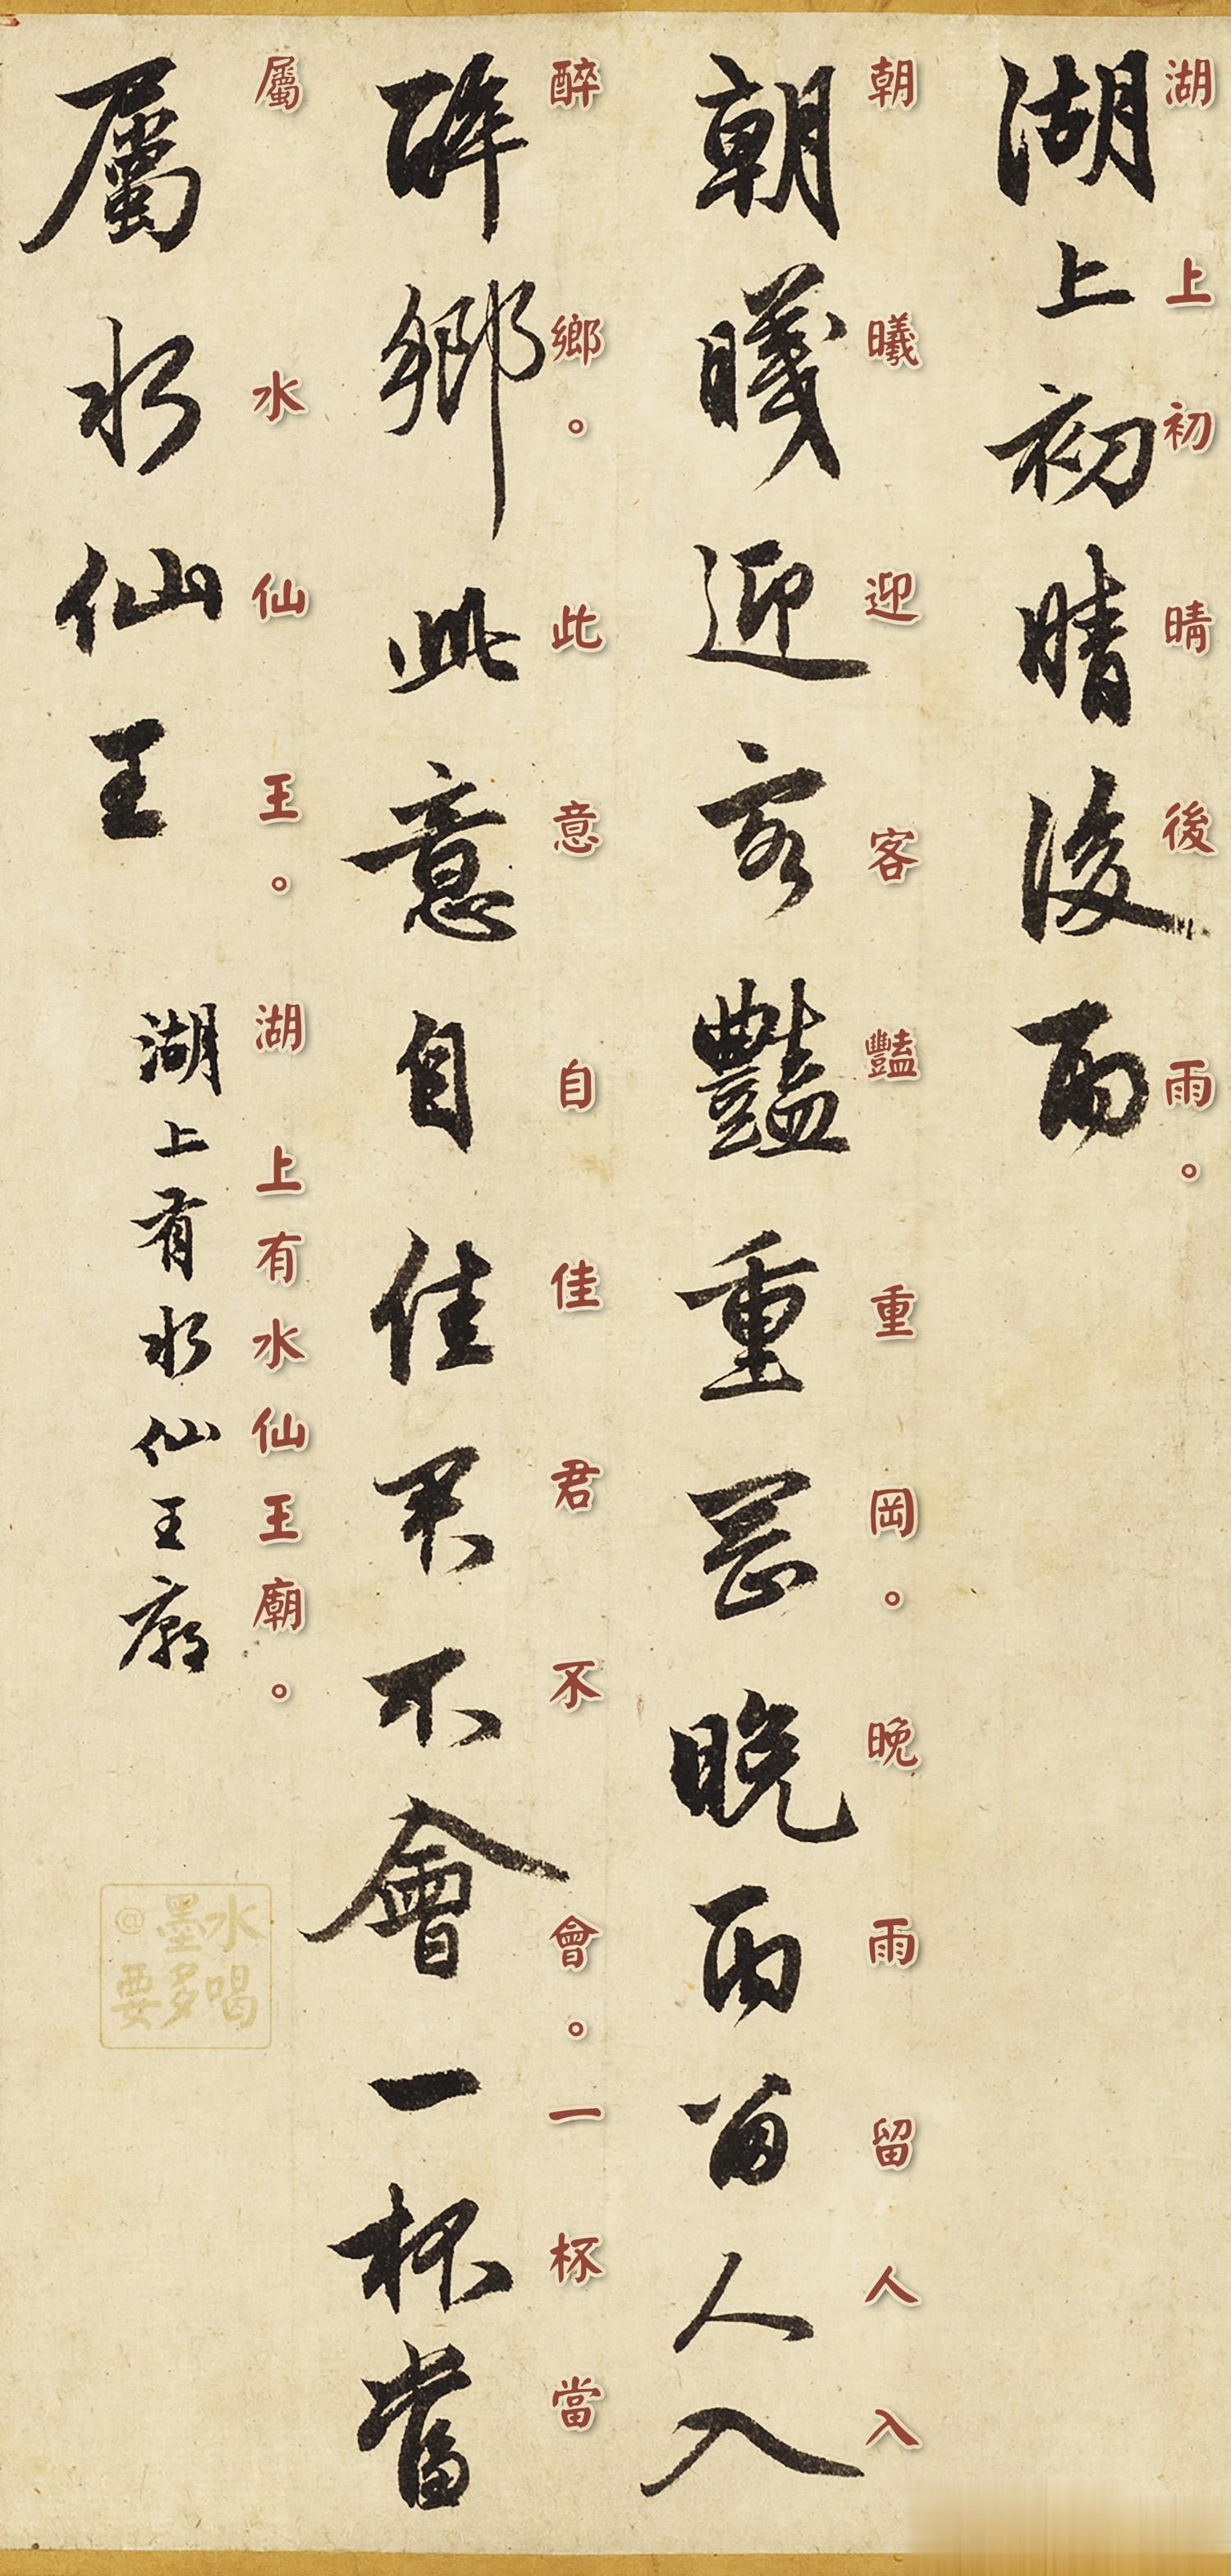 湖上初晴後雨。
湖上初晴後雨
朝曦迎客豔重岡。晚雨留人入
朝曦迎客豔重岡晚雨留人入
醉鄉。此意自佳君不會。一杯當
醉鄉此意自佳君不會一杯當
屬水仙王。湖上有水仙王廟。
屬水仙王湖上有水仙王廟
@墨水
要多喝